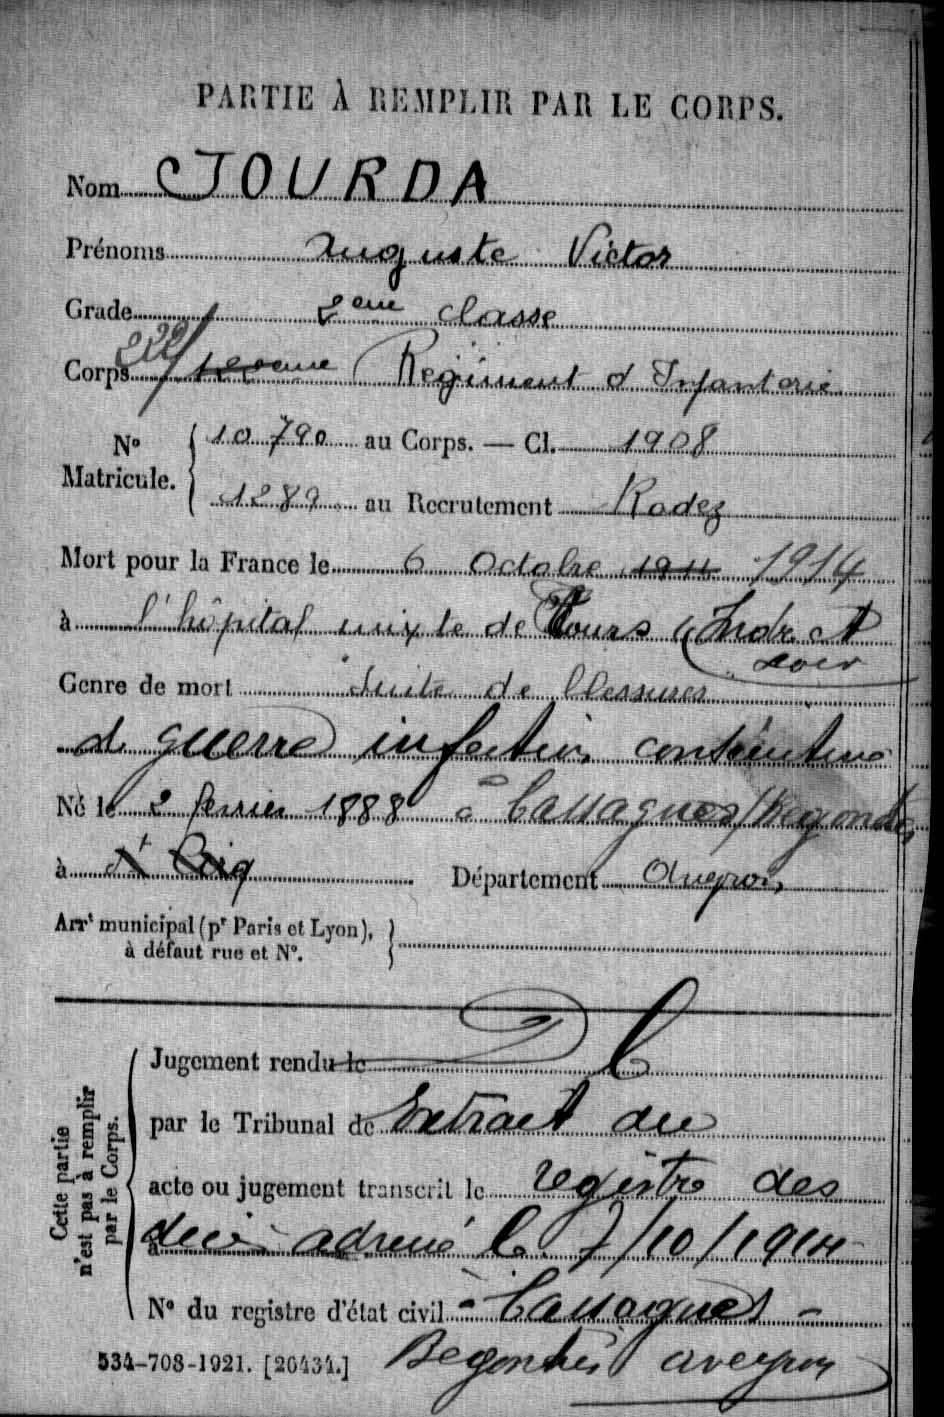 PARTIE À REMPLIR PAR LE CORPS.
Nom JOURDA
Prénoms Auguste Victor
Grade 2eme classe
222/
Corps Régiment d Infanterie
N° Matricule. { 10 790 au Corps. — Cl. 1908
1289 au Recrutement Rodez
Mort pour la France le 6 Octobre 1914 1914
à l'hôpital mixte de Tours (Indre et
Loir
Genre de mort Suite de blessures
de guerre infection consécutive
Né le 2 février 1888 à Cassagnes/Begonhès
à St Cirq Département Aveyron
Arrt municipal (pr Paris et Lyon),
à défaut rue et N°. }
Cette partie
n'est pas à remplir
par le Corps.
Jugement rendu le
par le Tribunal de Extrait du
acte ou jugement transcrit le registre des
à décès adressé le 7/10/1914
N° du registre d'état civil - à Cassagnes -
534-708-1921. [26434.] Begonhès aveyron